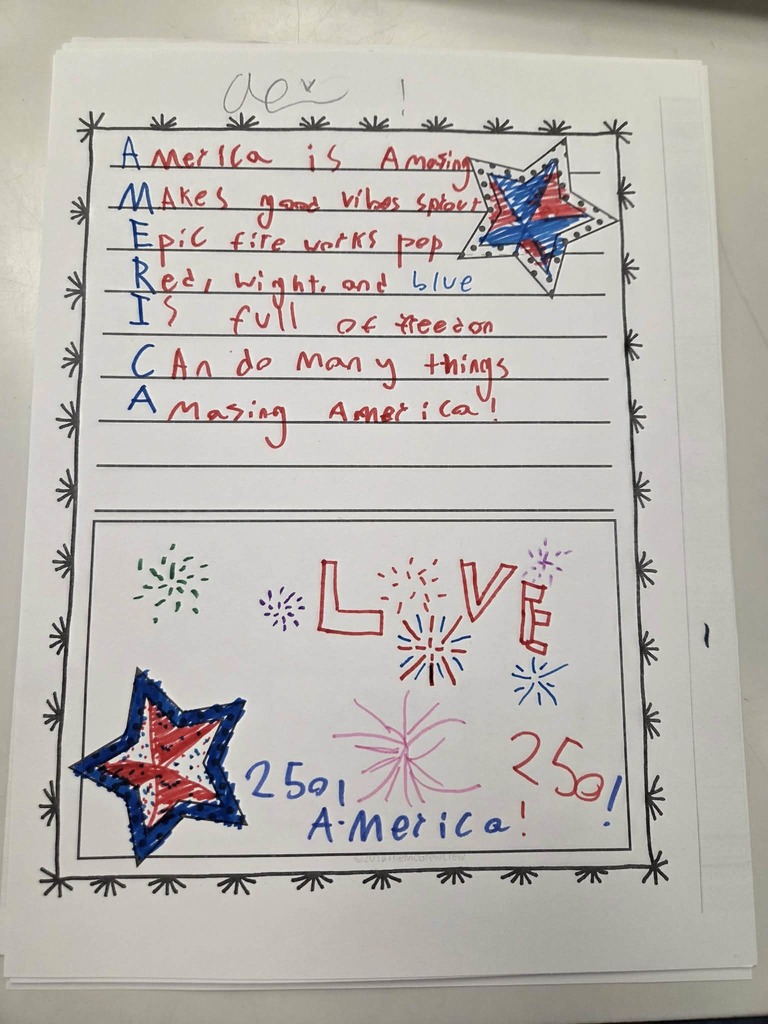 !
America is Amasing
MAkes good vibes sprout
Epic fire works pop
Red, wight, and blue
IS full of freedon
CAn do many things
AMasing America!
LOVE
250!
250!
AMerica!